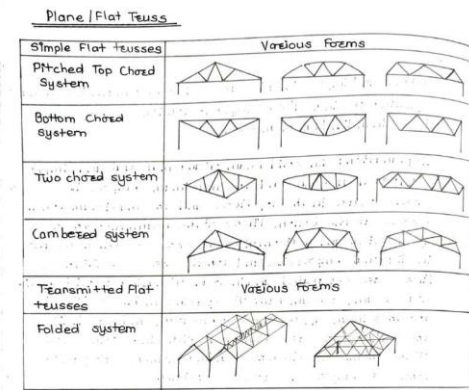 Plane/Flat Truss
Simple Flat trusses
Various Forms
Pitched Top Chord
System
Bottom Chord
system
Two chord system
Cambered system
Transmitted Flat
trusses
Various Forms
Folded system